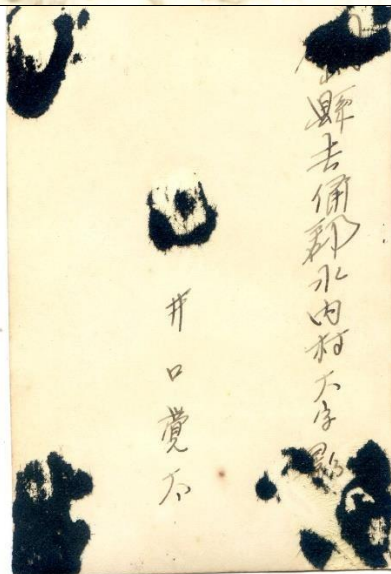 縣吉備郡水内村大字影
井口覚太